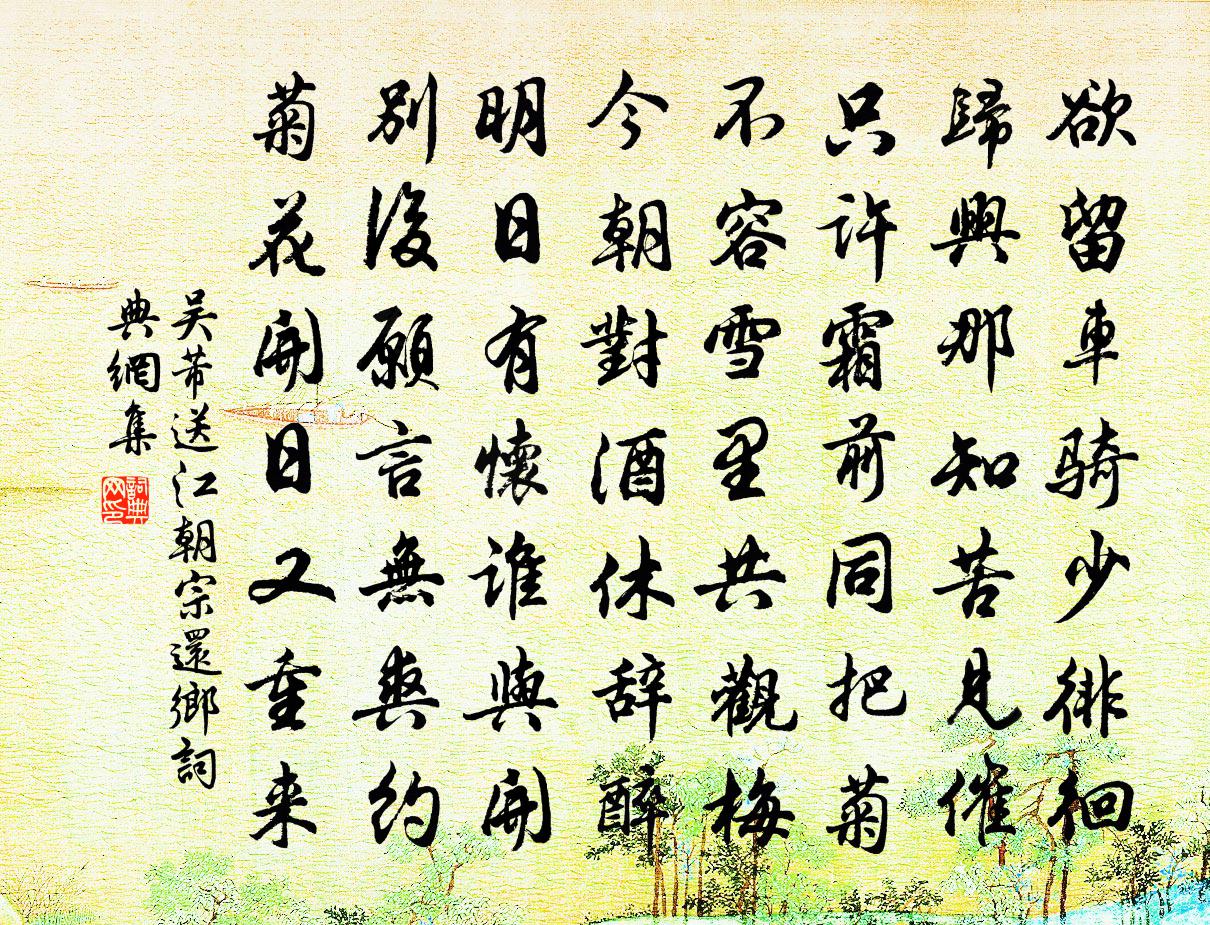 欲留車騎少徘徊
歸興那知苦見催
只許霜前同把菊
不容雪里共觀梅
今朝對酒休辞醉
明日有懷誰與開
別後願言無爽約
菊花開日又重来
吴芾送江朝宗還鄉詞
典網集
詞典
网印